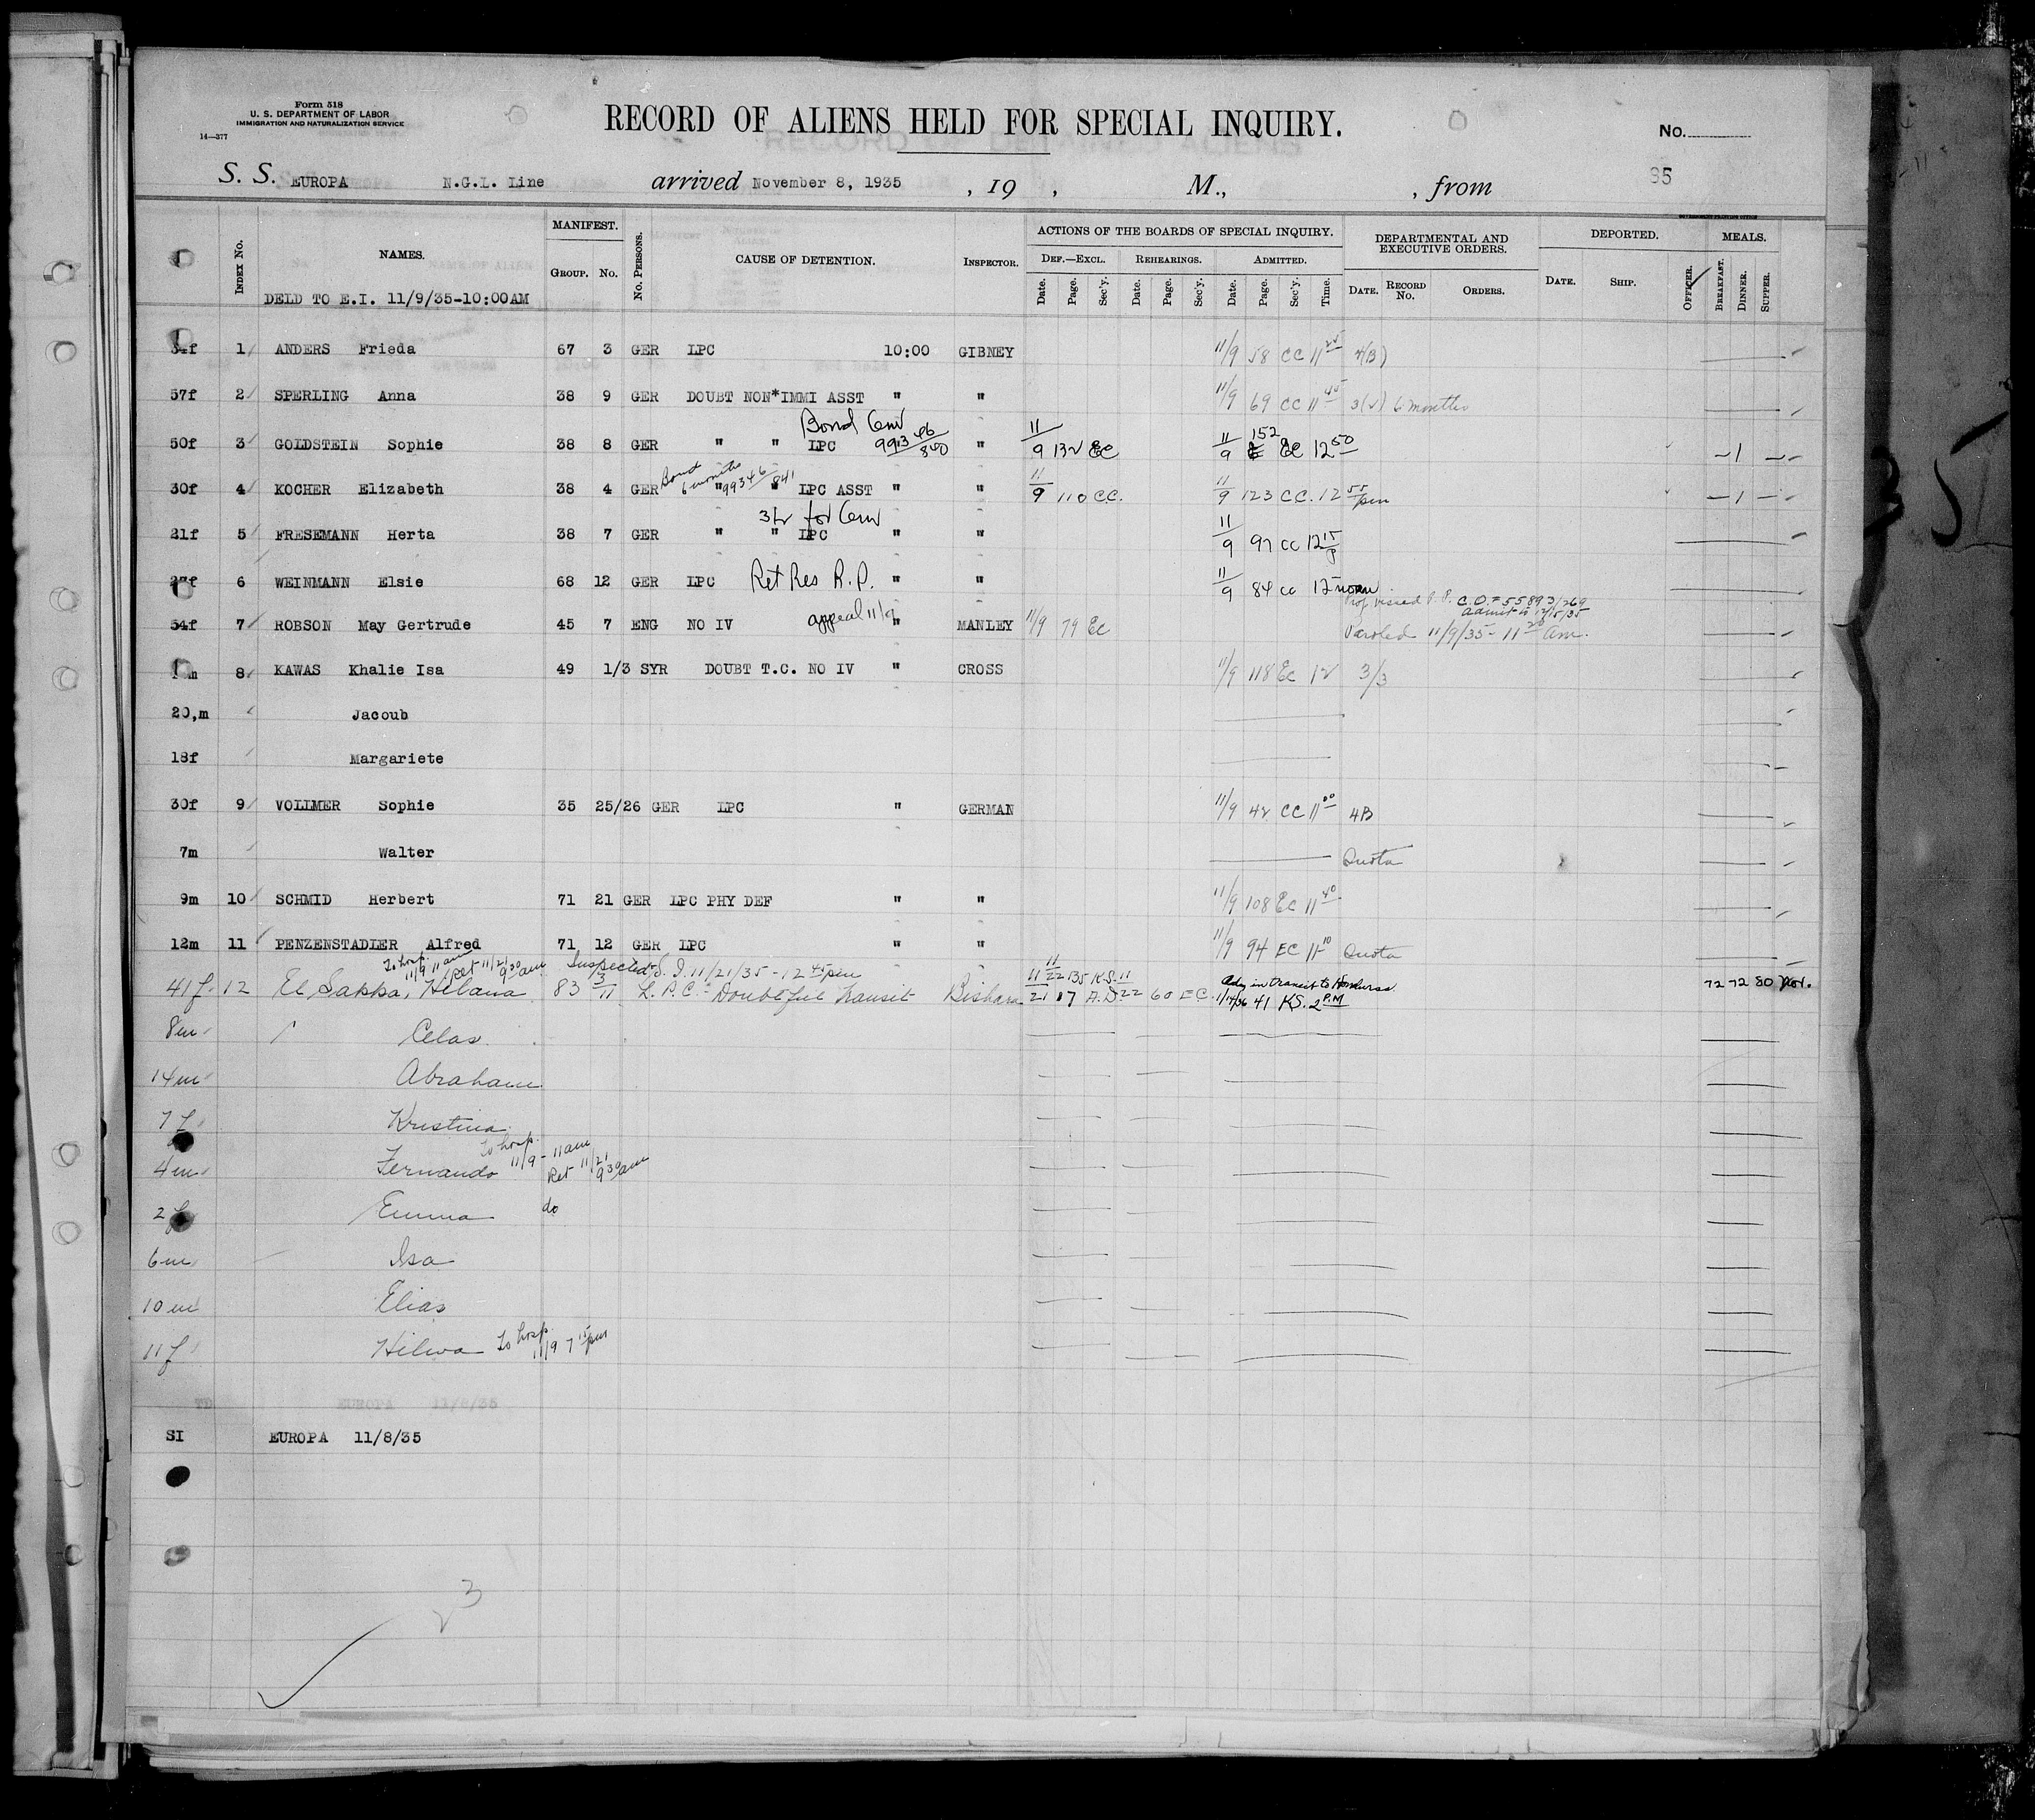 Form 518
U. S. DEPARTMENT OF LABOR
IMMIGRATION AND NATURALIZATION SERVICE
14—377
RECORD OF ALIENS HELD FOR SPECIAL INQUIRY.
No.
S. S. EUROPA N.G.L. Line arrived November 8, 1935 , 19 , M., , from
35
GOVERNMENT PRINTING OFFICE
INDEX No. NAMES. MANIFEST. GROUP. No. No. PERSONS. CAUSE OF DETENTION. INSPECTOR. ACTIONS OF THE BOARDS OF SPECIAL INQUIRY. DEF.—EXCL. Date. Page. Sec'y. REHEARINGS. Date. Page. Sec'y. ADMITTED. Date. Page. Sec'y. Time. DEPARTMENTAL AND EXECUTIVE ORDERS. DATE. RECORD No. ORDERS. DEPORTED. DATE. SHIP. OFFICER. MEALS. BREAKFAST. DINNER. SUPPER.
DELD TO E.I. 11/9/35-10:00AM
1 ANDERS Frieda 67 3 GER LPC 10:00 GIBNEY 11/9 58 CC 11 4(B)
57f 2 SPERLING Anna 38 9 GER DOUBT NON*IMMI ASST " " 11/9 69 CC 11 45 3(V) 6 months
Bond
50f 3 GOLDSTEIN Sophie 38 8 GER " " LPC 9913 46/840 " 11/9 132 EC 11/9 152 EC 12 50 1
Bond 6 months 99346/841
30f 4 KOCHER Elizabeth 38 4 GER " " LPC ASST " " 11/9 110 CC. 11/9 123 CC. 12 55 pm 1
21f 5 FRESEMANN Herta 38 7 GER " " LPC " " 11/9 97 CC 12 15 p
6 WEINMANN Elsie 68 12 GER LPC Ret Res R.P. " " 11/9 84 CC 12 noon
C.O. # 55893/269
Admit 12/15/35
54f 7 ROBSON May Gertrude 45 7 ENG NO IV appeal 11/9 " MANLEY 11/9 79 EC Paroled 11/9/35 - 11 20 am.
8 KAWAS Khalie Isa 49 1/3 SYR DOUBT T.C. NO IV " CROSS 11/9 118 EC 12 3/3
20,m Jacoub
18f Margariete
30f 9 VOLLMER Sophie 35 25/26 GER LPC " GERMAN 11/9 42 CC 11 00 4B
7m Walter Quota
9m 10 SCHMID Herbert 71 21 GER LPC PHY DEF " " 11/9 108 EC 11 40
12m 11 PENZENSTADLER Alfred 71 12 GER LPC " " 11/9 94 EC 11 10 Quota
To hosp. 11/9 11 am Ret 11/21 9 30 am Inspected S. I. 11/21/35 - 12 45 pm
41f 12 El Sakka, Helana 83 3/11 L.P.C. - Doubtful Transit Bishara 11/21 17 A.D. 11/22 135 K.S. 11/22 60 EC. Adm in transit to Honduras 1/14/36 41 KS. 2 P.M 72 72 80
8m Celas
14m Abraham
7f Kristina
4m Fernando To hosp. 11/9 - 11 am Ret 11/21 9 30 am
2f Emma do
6m Isa
10m Elias
11f Hilwa To hosp. 11/9 7 15 pm
TD EUROPA 11/8/35
SI EUROPA 11/8/35
3